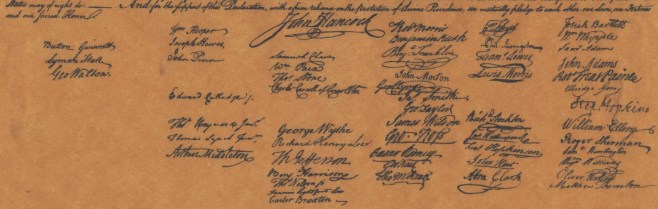 States may of right do. — And for the support of this Declaration, with a firm reliance on the protection of divine Providence, we mutually pledge to each other our Lives, our Fortunes
and our sacred Honor.
Button Gwinnett
Lyman Hall
Geo Walton.
Wm Hooper
Joseph Hewes,
John Penn
Edward Rutledge.
Thos Heyward Junr.
Thomas Lynch Junr.
Arthur Middleton
John Hancock
Samuel Chase
Wm Paca
Thos Stone
Charles Carroll of Carrollton
George Wythe
Richard Henry Lee
Th Jefferson
Benj Harrison
Thos Nelson jr.
Francis Lightfoot Lee
Carter Braxton
Robt Morris
Benjamin Rush
Benj. Franklin
John Morton
Geo Clymer
Jas. Smith
Geo. Taylor
James Wilson
Geo. Ross
Caesar Rodney
Geo Read
Tho M:Kean
Phil. Livingston
Frans. Lewis
Lewis Morris
Richd. Stockton
Jno Witherspoon
Fras. Hopkinson
John Hart
Abra Clark
Josiah Bartlett
Wm Whipple
Saml Adams
John Adams
Robt Treat Paine
Elbridge Gerry
Step. Hopkins
William Ellery
Roger Sherman
Saml Huntington
Wm Williams
Oliver Wolcott
Matthew Thornton